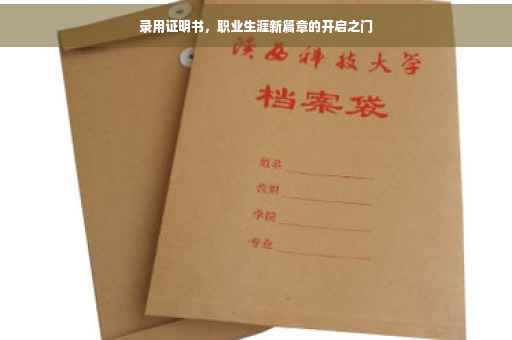 录用证明书，职业生涯新篇章的开启之门
陕西科技大学
档案袋
姓名
学院
专业